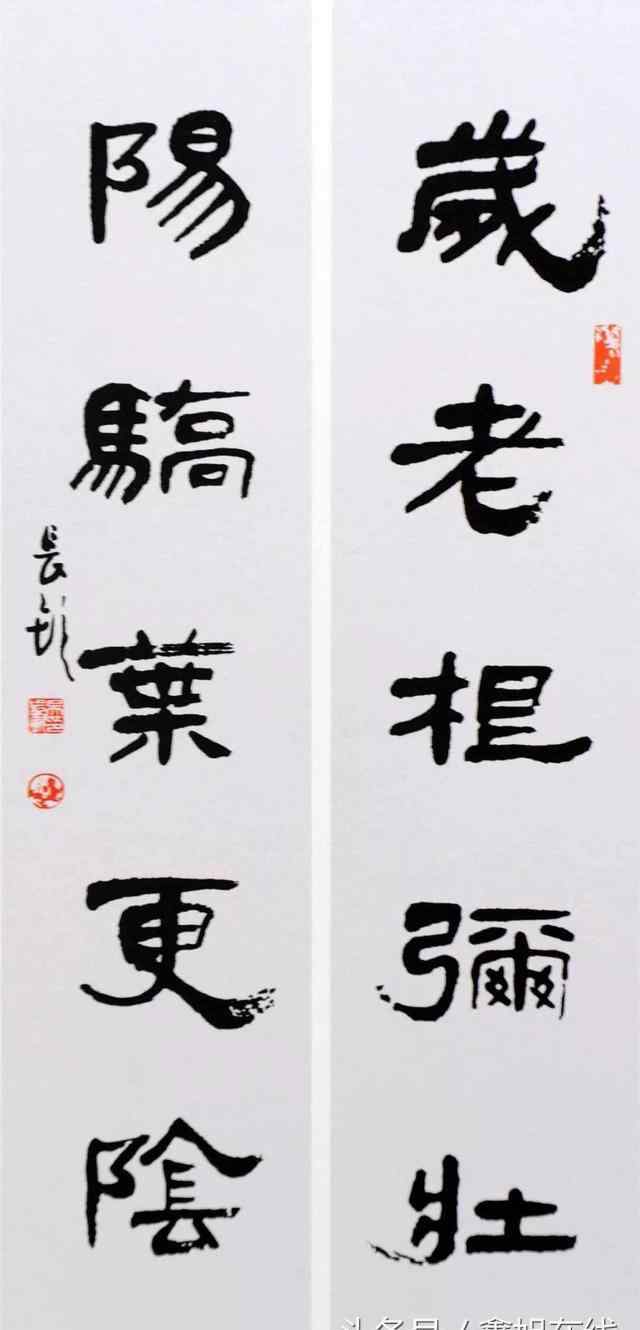 歲老根彌壯
陽驕葉更陰
長
头条号 / 鑫旭在线